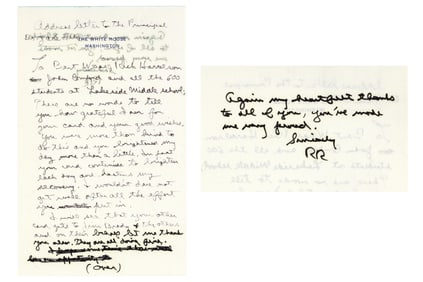 Address letter to the Principal
THE WHITE HOUSE
WASHINGTON
To Bert Webb, Rich Harrison
John and all the 600
students at Lakeside Middle School;
There are no words to tell
you how grateful I am for
your card and your good wishes.
You were more than kind to
do this and you brightened my
day more than a little. In fact
your card continues to brighten
each day and hastens my
recovery. I wouldn't dare not
get well after all the effort
you put in.
I will see that your other
card gets to Jim Brady & the others
and on their behalf let me thank
you also. They are all doing fine.
(over)
Again my heartfelt thanks
to all of you, you've made
me very proud.
Sincerely
RR